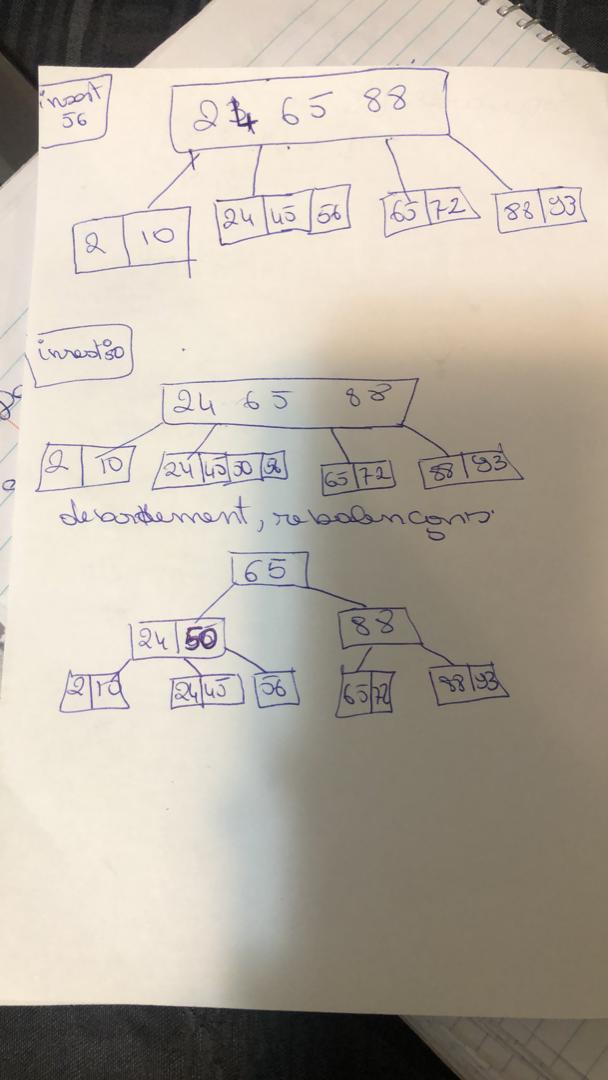 insert
56
24 65 88
2 10 24 45 56 65 72 88 93
insert 50
24 65 88
2 10 24 45 50 56 65 72 88 93
debordement, rebalençons
65
24 50 88
2 10 24 45 56 65 72 88 93